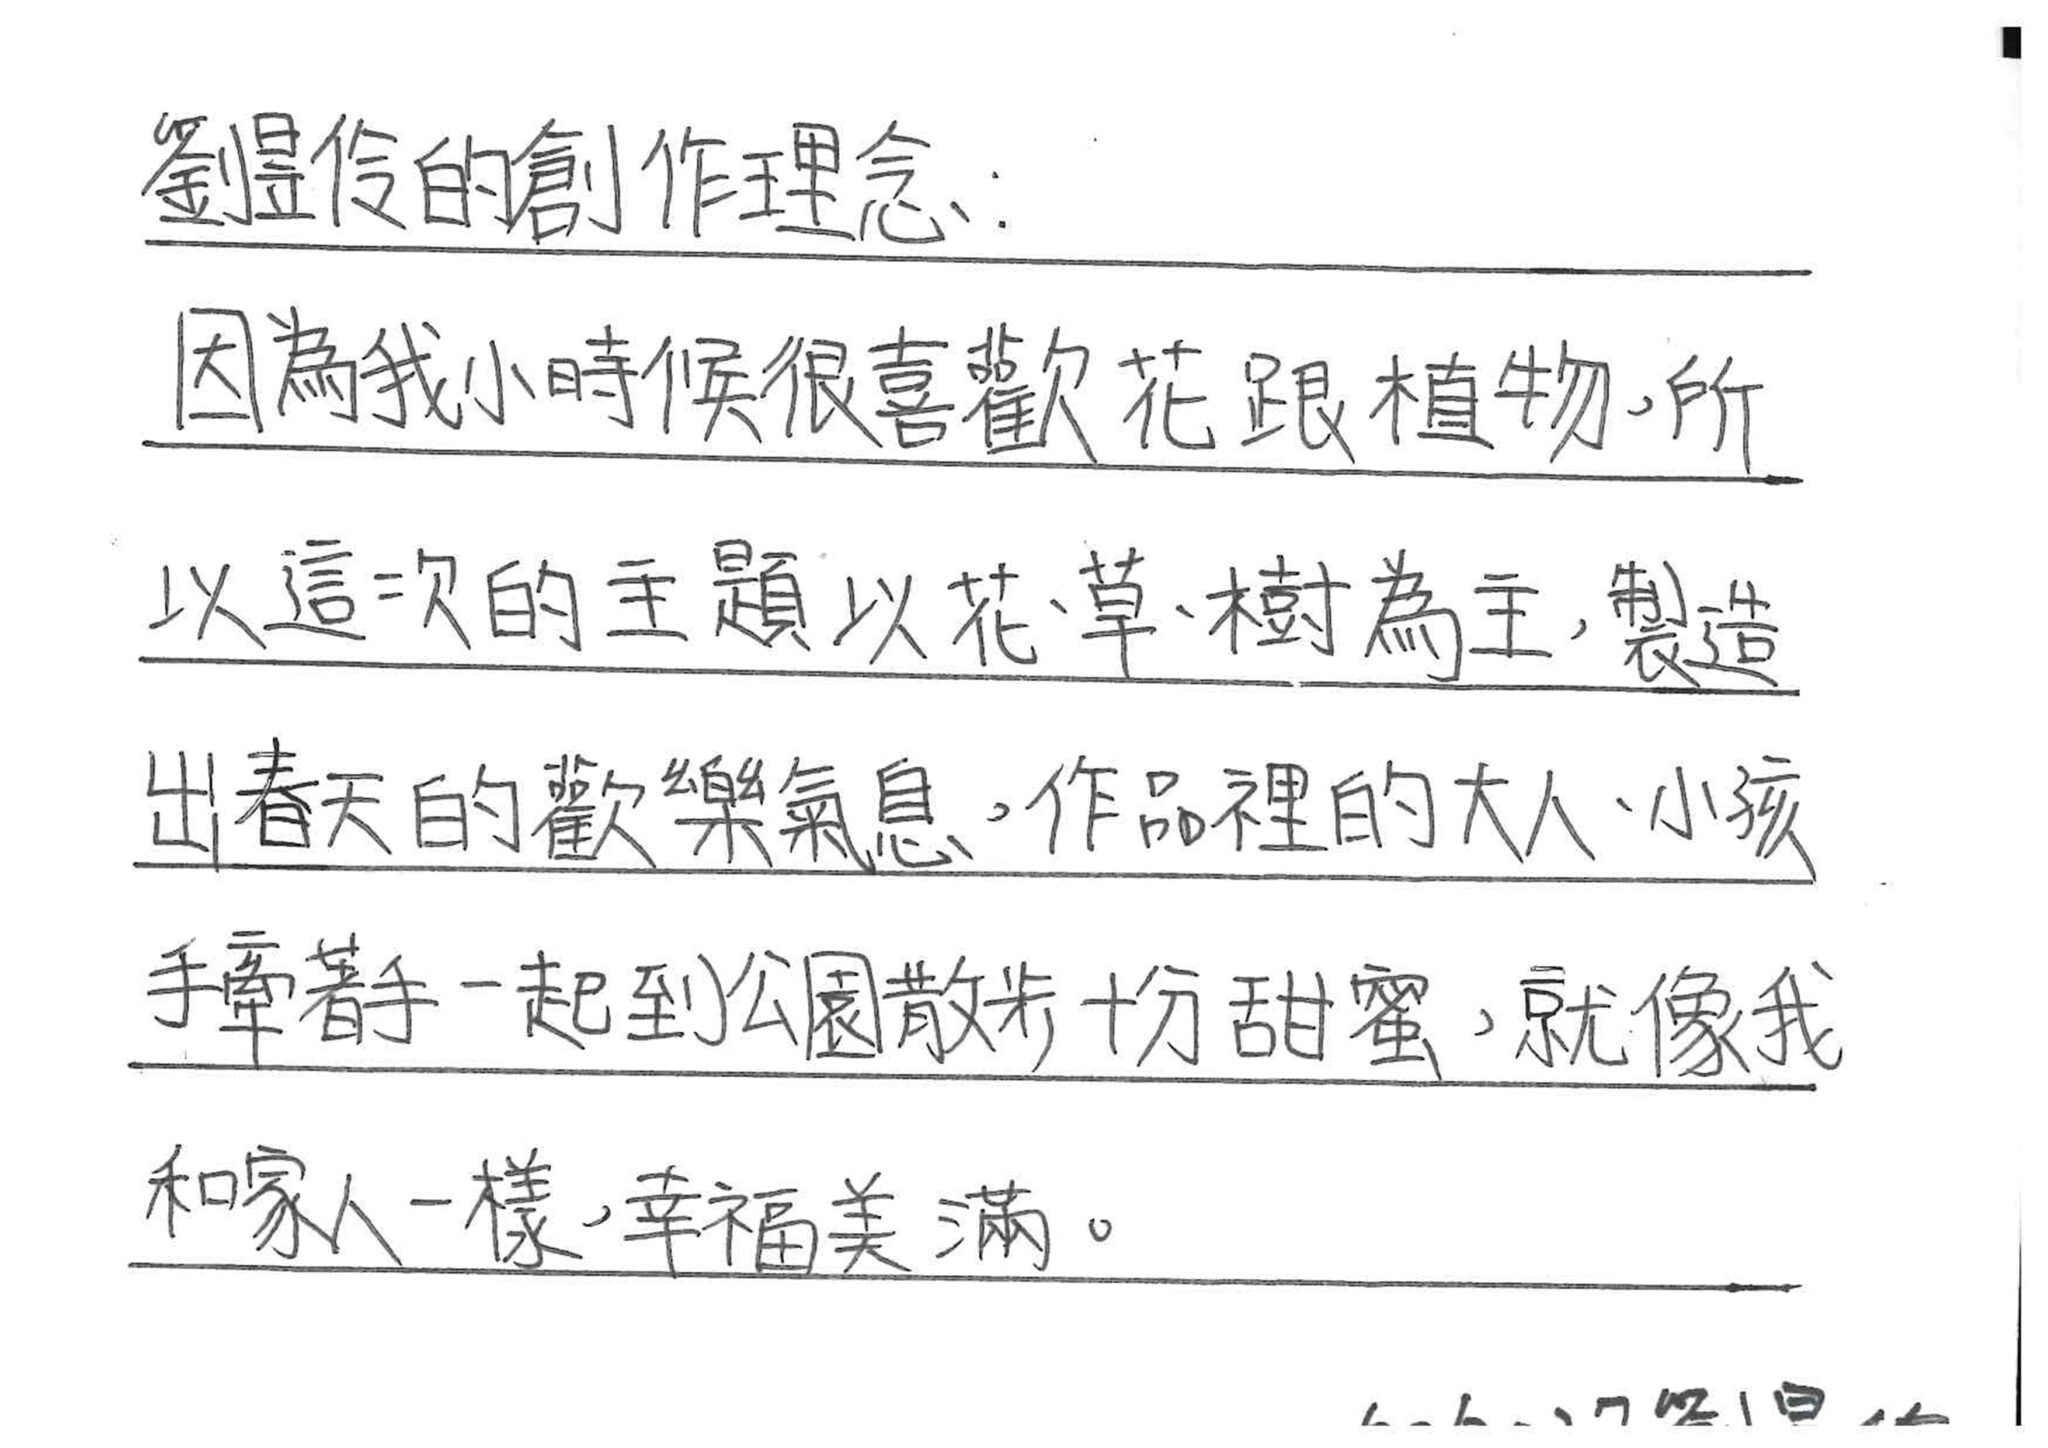 劉昱伶的創作理念：
因為我小時候很喜歡花跟植物，所
以這次的主題以花、草、樹為主，製造
出春天的歡樂氣息，作品裡的大人、小孩
手牽著手一起到公園散步十分甜蜜，就像我
和家人一樣，幸福美滿。